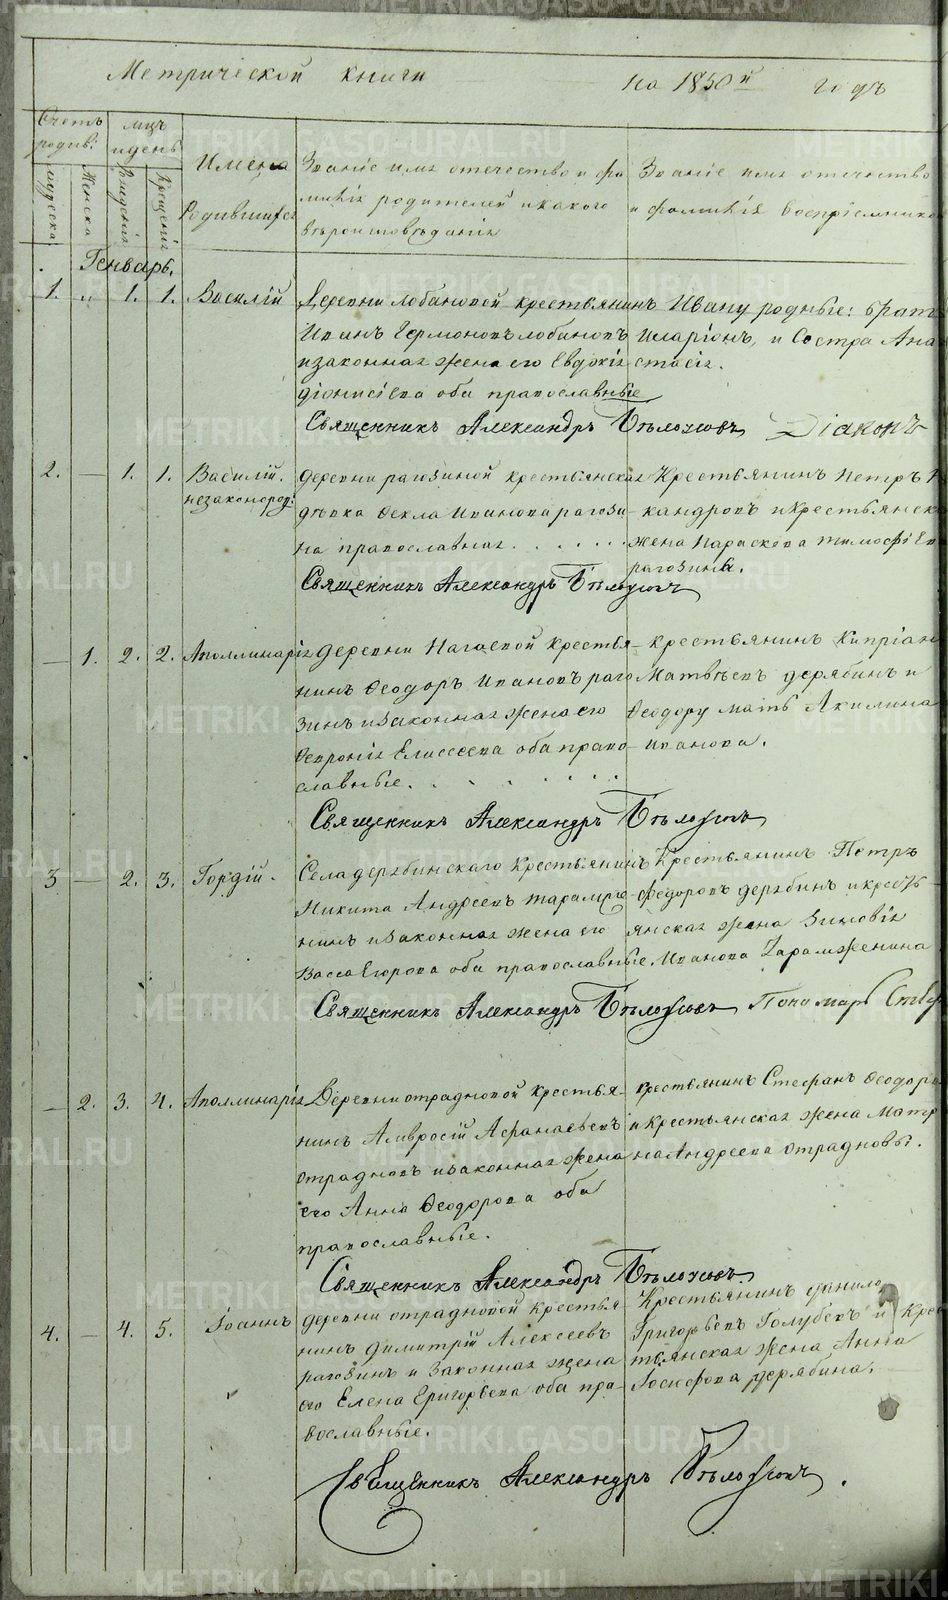 Метрической книги на 1850й годъ
Счетъ родив:
мцъ и день
Имена Родившихся
Званіе имя отечество и фамилія родителей и какого вѣроисповѣданія
Званіе имя отечество и фамилія воспріемнико
мужеска
Женска
рожденія
крещенія
Генварь.
1. „ 1. 1. Василій
Деревни лобановой крестьянинъ
Иванъ Гермоновъ лобановъ
и законная жена его Евдокія
діонисіева оба православныіе
Ивану родныіе: братъ
Иларіонъ, и Сестра Ана
стасія.
Священникъ Александръ Бѣлоусовъ Діаконъ
2. — 1. 1. Василій.
незаконород:
деревни рагозиной крестьянская
дѣвка Ѳекла Иванова рагози
на православная . . . . . .
Крестьянинъ Петръ Н
кандровъ и крестьянска
жена Параскева тимофѣева
рагозины.
Священникъ Александръ Бѣлоусовъ
— 1. 2. 2. Аполлинарія
деревни Нагаевой крестья
нинъ Ѳеодоръ Ивановъ раго
зинъ и законная жена его
Ѳевронія Елисеева оба право
славныіе. . . . . . . .
крестьянинъ Кипріан
Матвѣевъ дерябинъ и
Ѳеодору мать Акилина
Иванова.
Священникъ Александръ Бѣлоусовъ
3 — 2. 3. Гордій.
Села дерябинскаго крестьянинъ
Никита Андреевъ тарамже
нинъ и законная жена его
Васса Егорова оба православныіе.
Крестьянинъ Петръ
Федоровъ дерябинъ и кресть-
янская жена Зиновія
Иванова Тарамженина
Священникъ Александръ Бѣлоусовъ Пономарь
— 2. 3. 4. Аполлинарія
Деревни отрадновой крестья-
нинъ Амвросій Афанасьевъ
отрадновъ и законная жена
его Анна Ѳеодорова оба
православныіе.
крестьянинъ Стефанъ Ѳеодоро
и крестьянская жена Матр
на Андреева отрадновы.
Священникъ Александръ Бѣлоусовъ
4. — 4. 5. Іоаннъ
деревни отрадновой крестья
нинъ димитрій Алексеевъ
рагозинъ и законная жена
его Елена Григорьева оба пра-
вославныіе.
Крестьянинъ данило
Григорьевъ Голубевъ и крес
тьянская жена Анна
Іосифова дерябина.
Священникъ Александръ Бѣлоусовъ.
METRIKI.GASO-URAL.RU